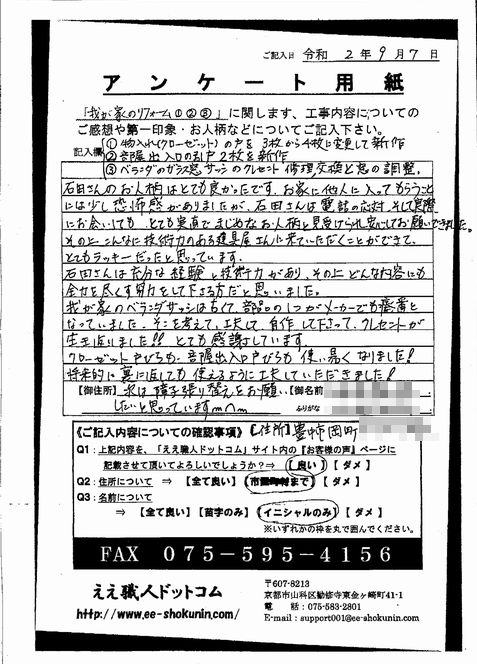 ご記入日 令和 2年9月7日
アンケート用紙
「我が家のリフォーム①②③」に関します、工事内容についての
ご感想や第一印象・お人柄などについてご記入下さい。
記入欄 ①物入れ(クローゼット)の戸を3枚から4枚に変更して新作
②部屋出入口の引戸2枚を新作
③ベランダのガラス窓サッシのクレセント修理交換と窓の調整。
石田さんのお人柄はとても良かったです。お家に他人に入ってもらうこと
には少し恐怖感がありましたが、石田さんは電話の応対、そして実際
にお会いしても、とても実直でまじめなお人柄と見受けられ安心してお願いできました。
その上、こんなに技術力のある建具屋さんに来ていただくことができて、
とてもラッキーだったと思っています。
石田さんは充分な経験と技術力があり、その上どんな内容にも
全力を尽くす努力をして下さる方だと思いました。
我が家のベランダサッシは古くて、部品の1つがメーカーでも廃番と
なっていました。そこを考えて、工夫して自作して下さって、クレセントが
生き返りました!! とても感謝しています。
クローゼット戸びらも、部屋出入口戸びらも使い易くなりました!
将来的に裏に返しても使えるように工夫していただきました!
【御住所】 次は障子張り替えをお願い 【御名前】
したいと思っていますm∩m ふりがな
《ご記入内容についての確認事項》 【住所】豊中市岡町
Q1:上記内容を、「ええ職人ドットコム」サイト内の『お客様の声』ページに
記載させて頂いてよろしいでしょうか?⇒ 【良い】 【ダメ】
Q2:住所について ⇒ 【全て良い】 【市区町村まで】 【ダメ】
Q3:名前について
⇒ 【全て良い】 【苗字のみ】 【イニシャルのみ】 【ダメ】
※いずれかの枠を丸で囲んでください。
FAX 075-595-4156
ええ職人ドットコム
http://www.ee-shokunin.com/
〒607-8213
京都市山科区勧修寺東金ヶ崎町41-1
電 話:075-583-2801
E-mail:support001@ee-shokunin.com